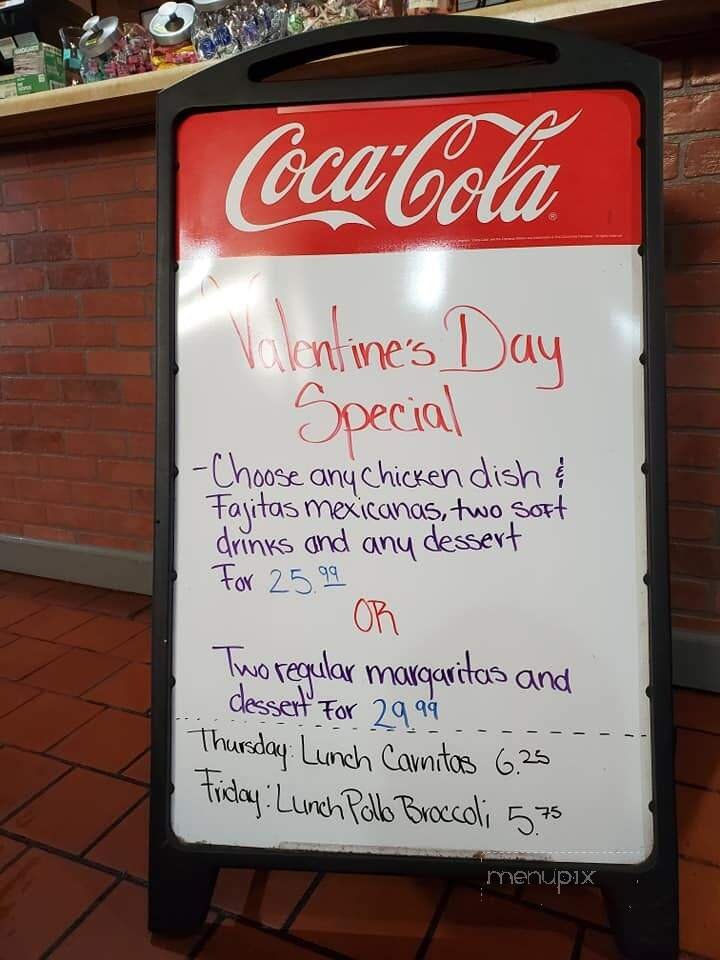 Coca-Cola
Valentine's Day
Special
-Choose any chicken dish &
Fajitas mexicanas, two soft
drinks and any dessert
For 25.99
OR
Two regular margaritas and
dessert For 29 99
Thursday: Lunch Carnitas 6.25
Friday: Lunch Pollo Broccoli 5.75
menupix